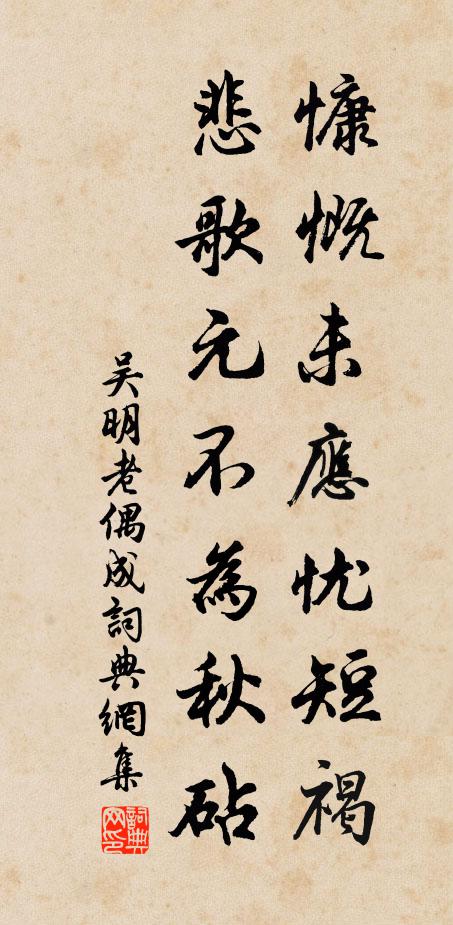 慷慨未應忧短褐
悲歌元不為秋砧
吴明老偶成詞典網集
詞典网印